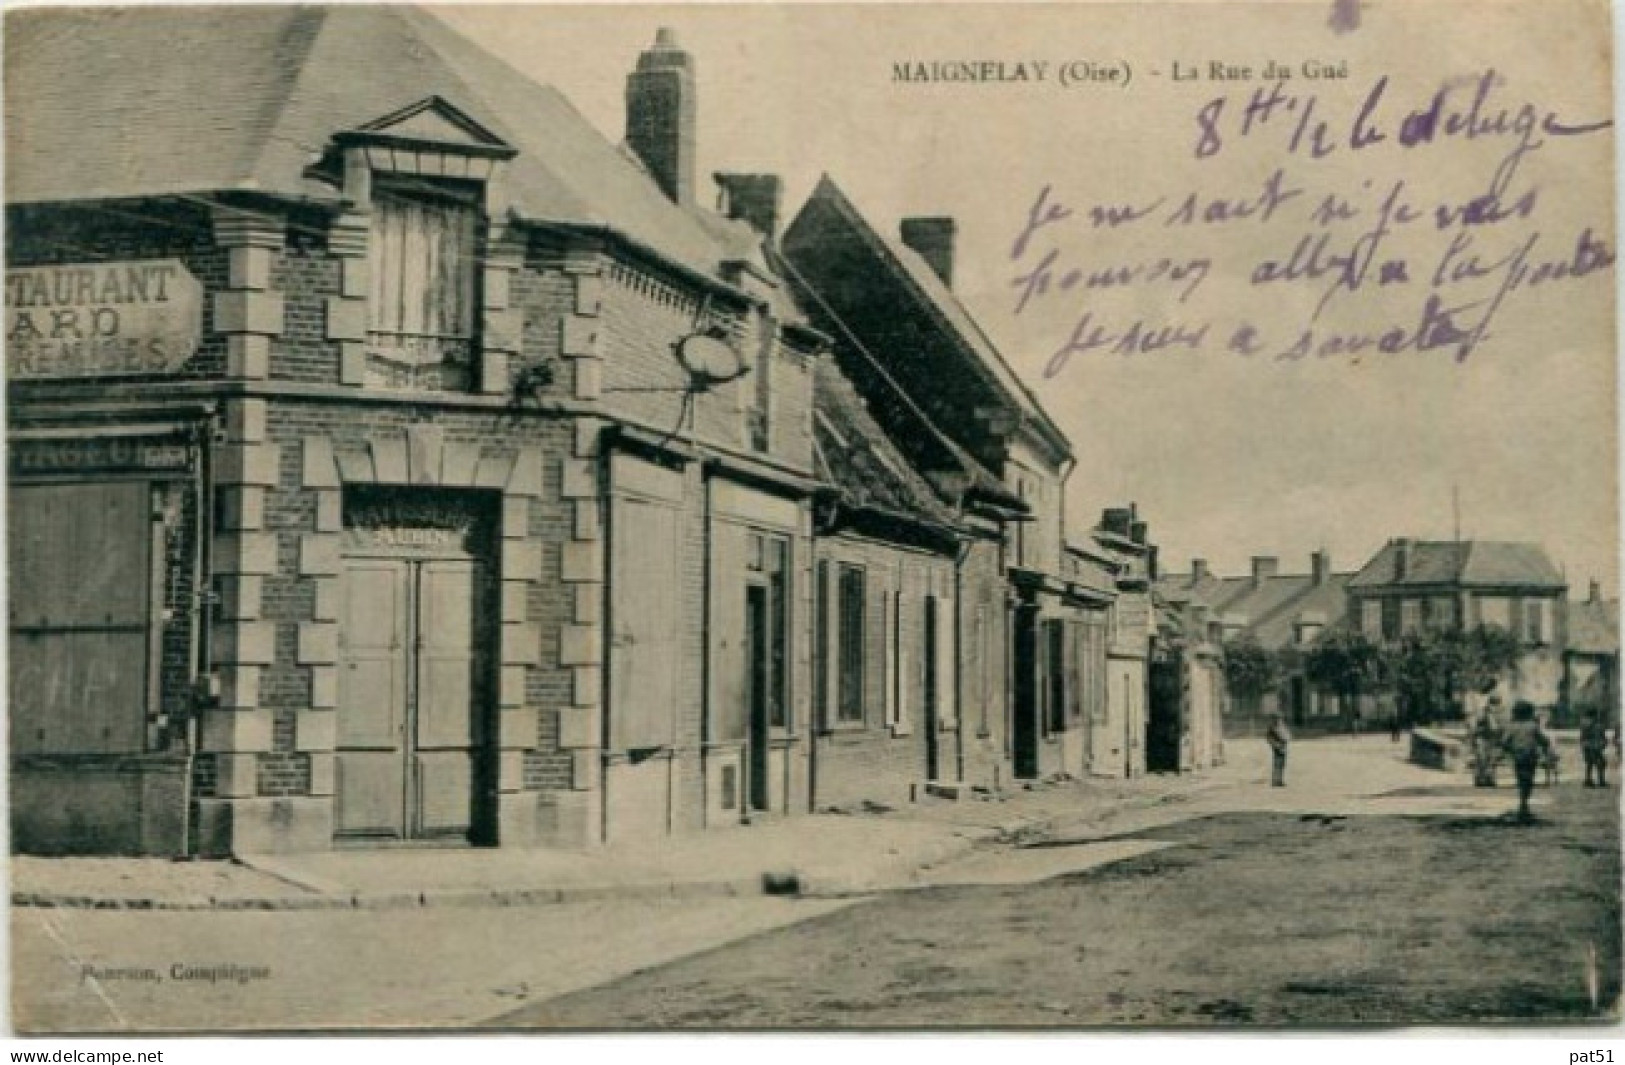 MAIGNELAY (Oise) - La Rue du Gué
8 H 1/2 le deluge
Je ne sait si je vais
pouvoir aller a la poste
Je suis a savate
STAURANT
ARD
REMISES
AUBIN
CAF
Bourson, Compiègne
www.delcampe.net
pat51